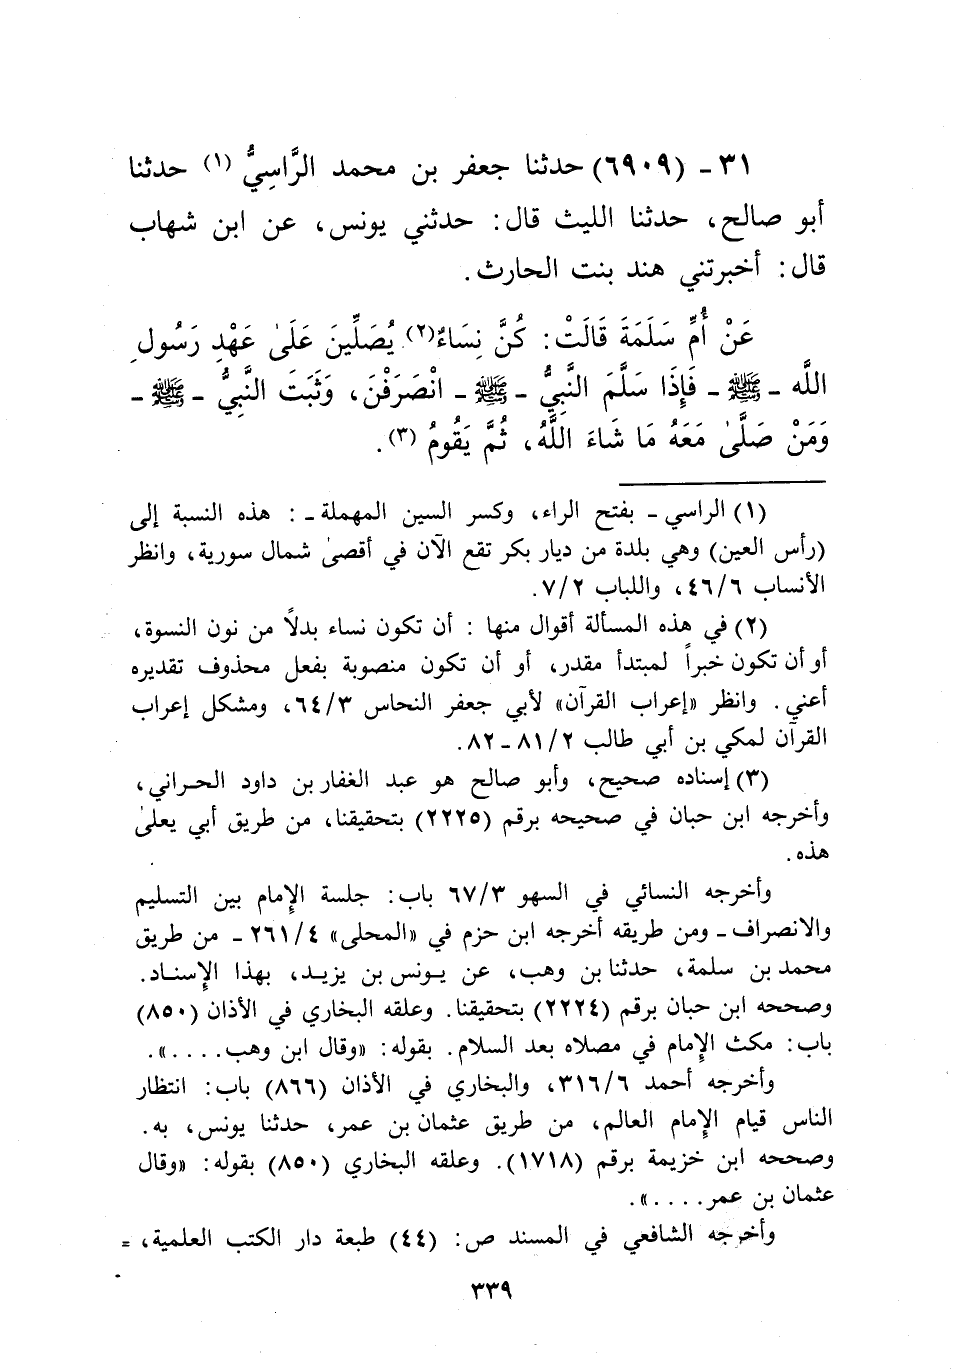 ٣١ - (٦٩٠٩) حدثنا جعفر بن محمد الرَّاسِيُّ (١) حدثنا
أبو صالح، حدثنا الليث قال: حدثني يونس، عن ابن شهاب
قال: أخبرتني هند بنت الحارث.
عَنْ أُمِّ سَلَمَةَ قَالَتْ: كُنَّ نِسَاءٌ(٢) يُصَلِّينَ عَلَىٰ عَهْدِ رَسُولِ
اللَّه - ﷺ - فَإِذَا سَلَّمَ النَّبِيُّ - ﷺ - انْصَرَفْنَ، وَثَبَتَ النَّبِيُّ - ﷺ -
وَمَنْ صَلَّىٰ مَعَهُ مَا شَاءَ اللَّهُ، ثُمَّ يَقُومُ (٣).
(١) الراسي - بفتح الراء، وكسر السين المهملة - : هذه النسبة إلى
(رأس العين) وهي بلدة من ديار بكر تقع الآن في أقصىٰ شمال سورية، وانظر
الأنساب ٤٦/٦، واللباب ٧/٢.
(٢) في هذه المسألة أقوال منها : أن تكون نساء بدلاً من نون النسوة،
أو أن تكون خبراً لمبتدأ مقدر، أو أن تكون منصوبة بفعل محذوف تقديره
أعني. وانظر «إعراب القرآن» لأبي جعفر النحاس ٦٤/٣، ومشكل إعراب
القرآن لمكي بن أبي طالب ٨١/٢ - ٨٢.
(٣) إسناده صحيح، وأبو صالح هو عبد الغفار بن داود الحراني،
وأخرجه ابن حبان في صحيحه برقم (٢٢٢٥) بتحقيقنا، من طريق أبي يعلىٰ
هذه.
وأخرجه النسائي في السهو ٦٧/٣ باب: جلسة الإمام بين التسليم
والانصراف - ومن طريقه أخرجه ابن حزم في «المحلى» ٢٦١/٤ - من طريق
محمد بن سلمة، حدثنا بن وهب، عن يونس بن يزيد، بهذا الإسناد.
وصححه ابن حبان برقم (٢٢٢٤) بتحقيقنا. وعلقه البخاري في الأذان (٨٥٠)
باب: مكث الإمام في مصلاه بعد السلام. بقوله: «وقال ابن وهب....».
وأخرجه أحمد ٣١٦/٦، والبخاري في الأذان (٨٦٦) باب: انتظار
الناس قيام الإمام العالم، من طريق عثمان بن عمر، حدثنا يونس، به.
وصححه ابن خزيمة برقم (١٧١٨). وعلقه البخاري (٨٥٠) بقوله: «وقال
عثمان بن عمر....».
وأخرجه الشافعي في المسند ص: (٤٤) طبعة دار الكتب العلمية، =
٣٣٩